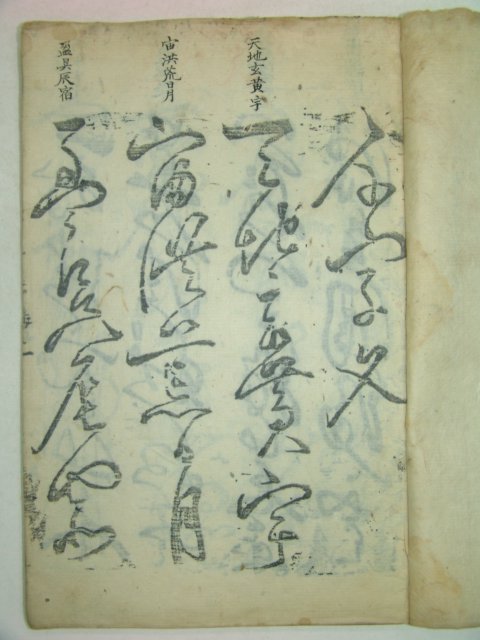 天地玄黃宇
宙洪荒日月
盈昃辰宿
千字文
天地玄黃宇
宙洪荒日月
盈昃辰宿